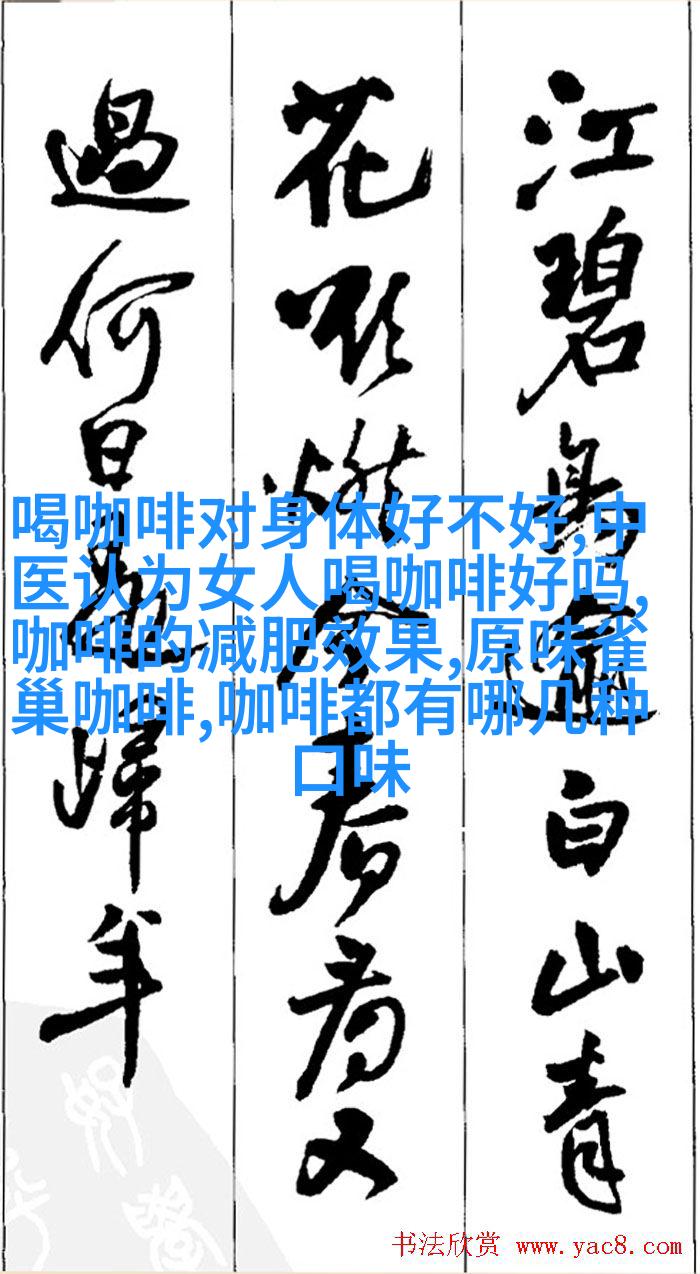 江碧鳥逾白山青
花欲燃今春看又
過何日是歸年
喝咖啡对身体好不好,中
医认为女人喝咖啡好吗,
咖啡的减肥效果,原味雀
巢咖啡,咖啡都有哪几种
口味
书法欣赏 www.yac8.com